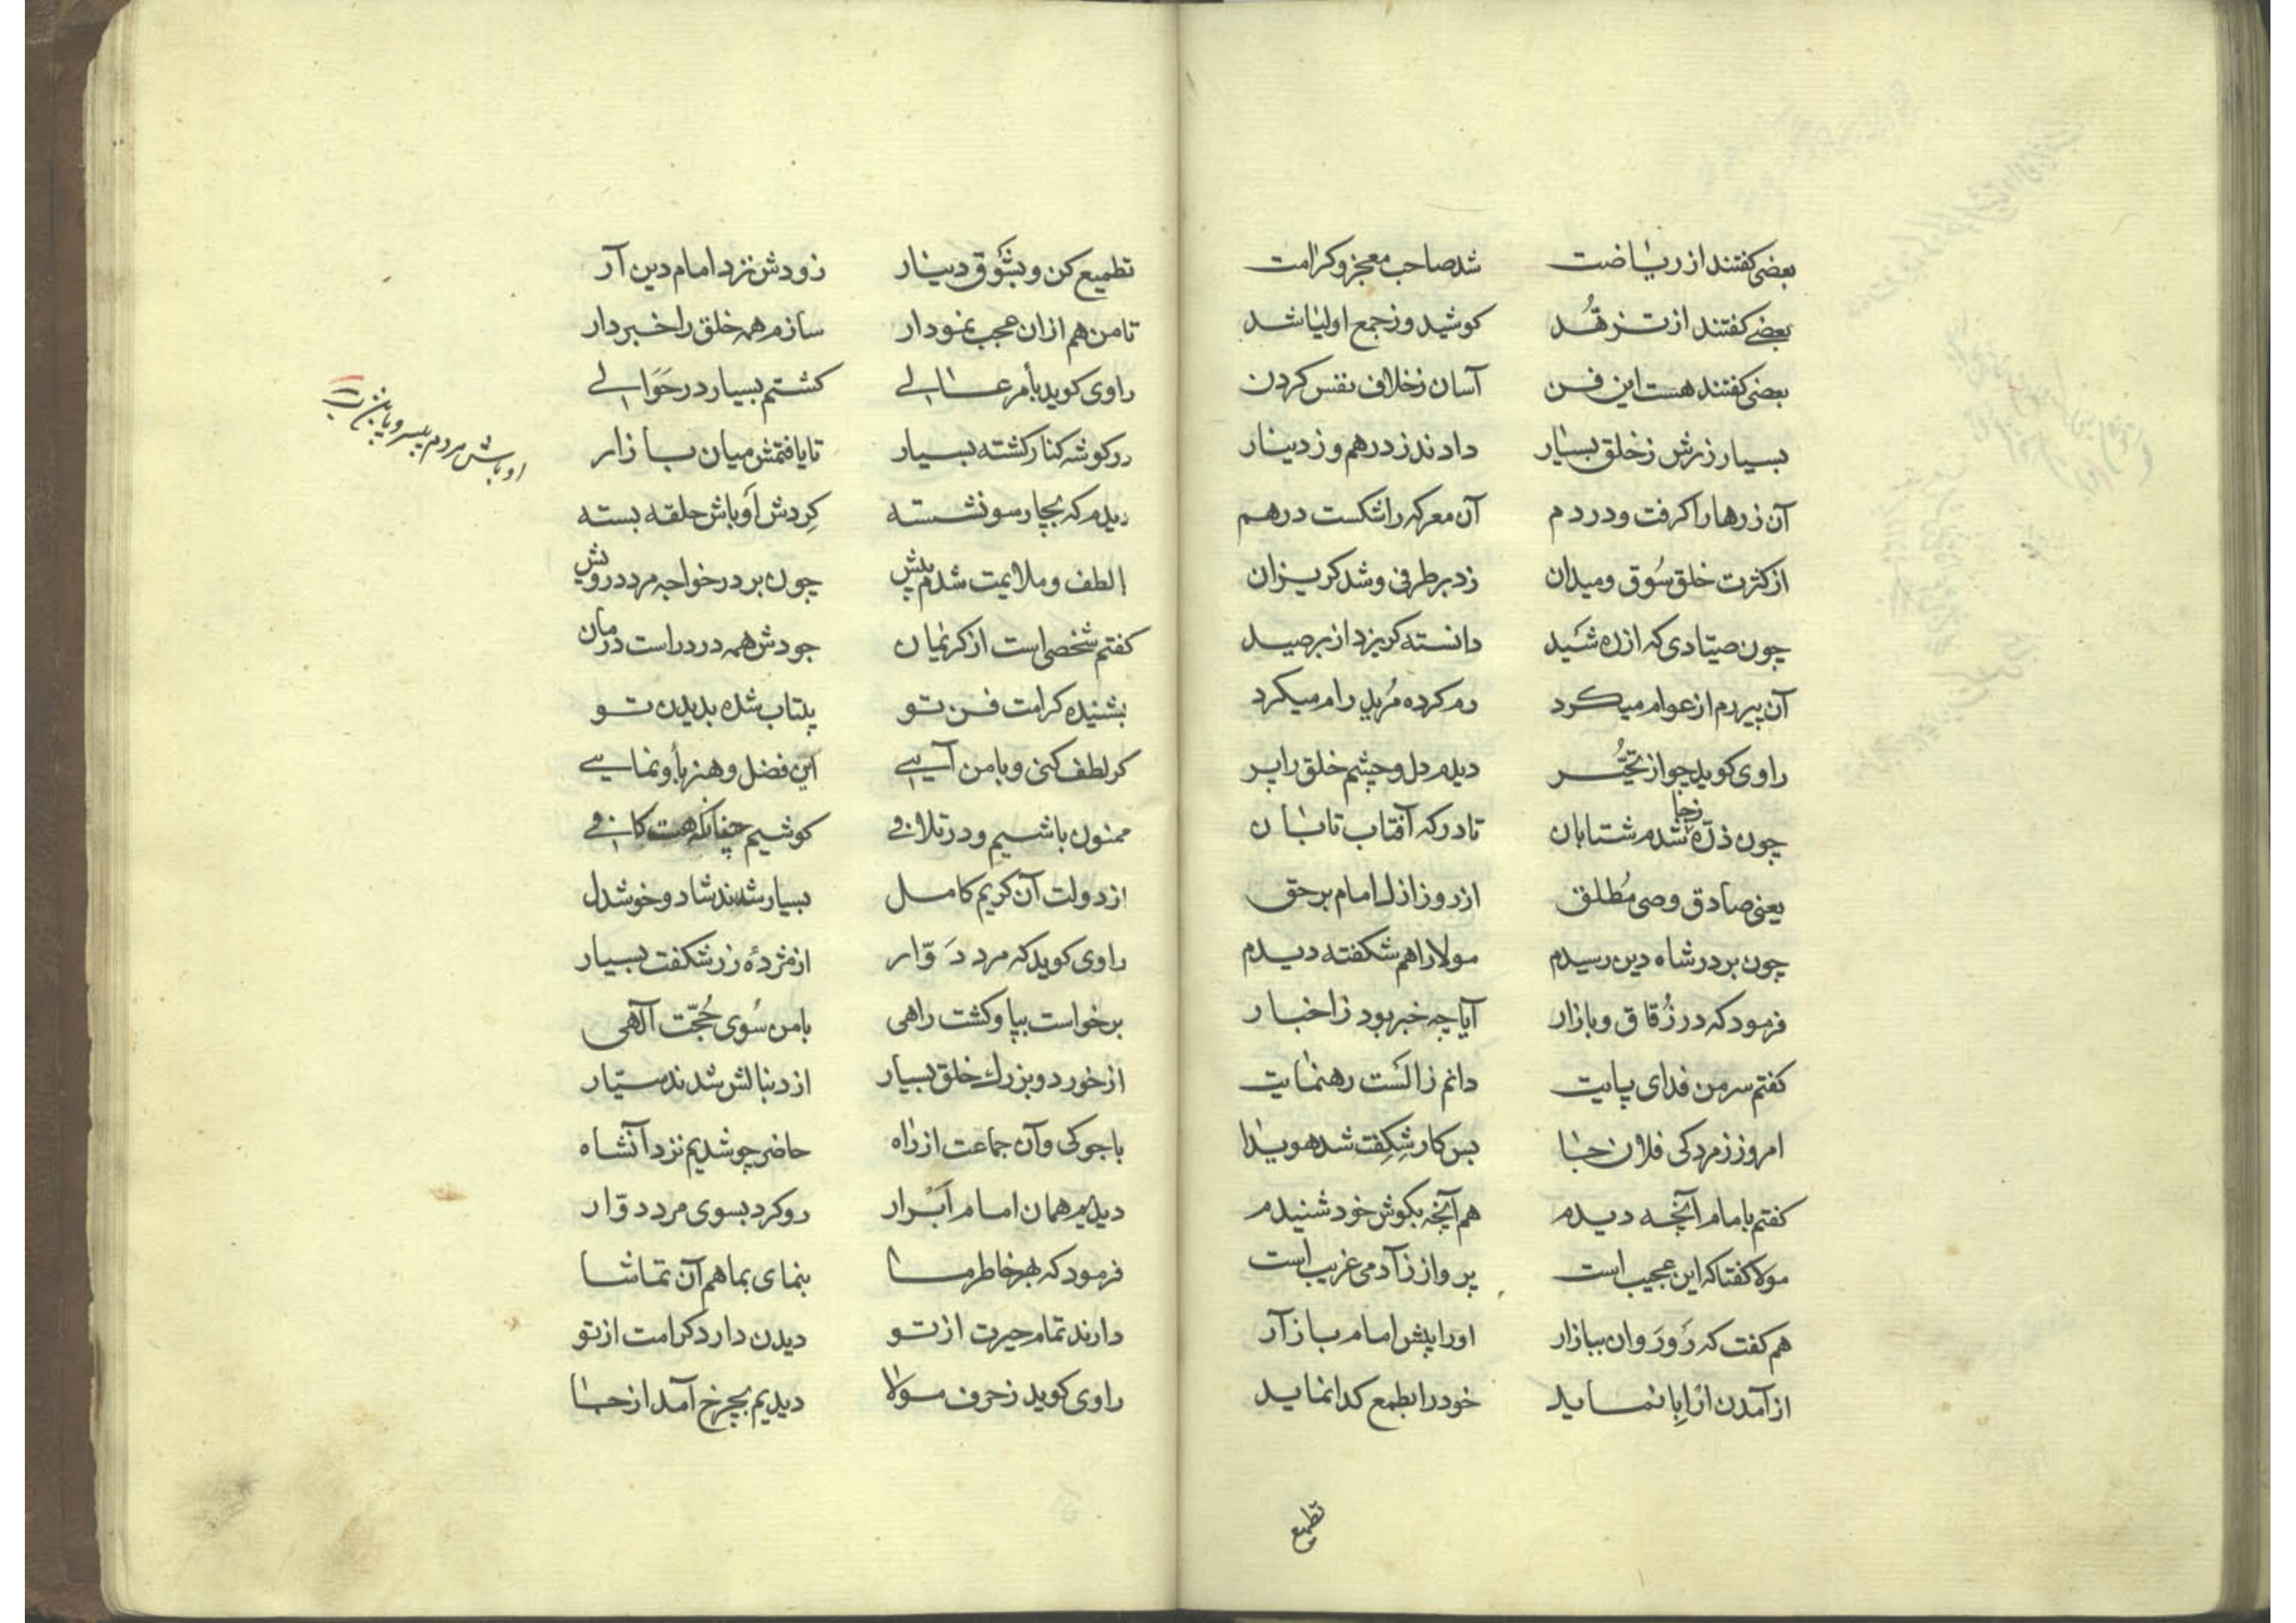 بعضی کفتند از ریاضت شد صاحب معجز و کرامت
بعضی کفتند از تزهُّد کوشید وز جمع اولیا شد
بعضی کفتند هست این فن آسان ز خلاف نفس کردن
بسیار زرش ز خلق بسیار دادند ز درهم و ز دینار
آن زرها را کرفت و در دم آن معرکه را شکست درهم
از کثرت خلق سُوق و میدان زد بر طرفی و شد کریزان
چون صیّادی که از ره شَید دانسته کریزد از بر صید
آن پیر رم از عوام میکرد رم کرده مُرید رام میکرد
راوی کوید چو از تحیُّر دیدم دل و چشم خلق را پر
چون ذرّه ز جا شدم شتابان تا درکه آفتاب تابان
یعنی صادق وصی مُطلق از روز ازل امام بر حق
چون بر در شاه دین رسیدم مولا را هم شکفته دیدم
فرمود که در زُقاق و بازار آیا چه خبر بود ز اخبار
کفتم سر من فدای پایت دانم ز الَست رهنمایت
امروز ز مردکی فلان جا بس کار شِکِفت شد هویدا
کفتم با امام آنچه دیدم هم آنچه بکوش خود شنیدم
مولا کفتا که این عجیب است پرواز ز آدمی غریب است
هم کفت که رَو رَوان ببازار او را پیش امام باز آر
از آمدن ار اِبا نماید خود را بطمع کدا نماید
تطمیع
تطمیع کن و بشَوق دینار زودش نزد امام دین آر
تا من هم ازان عجب نمودار سازم همه خلق را خبردار
راوی کوید بأمر عالی کشتم بسیار در حَوالی
در کوشه کنار کشته بسیار تا یافتمش میان بازار
دیدم که بچارسو نشسته کِردش اَوباش حلقه بسته
اوباش مردم بیسر و پا
با لطف و ملایمت شدم پیش چون بر در خواجه مرد درویش
کفتم شخصی است از کریمان جودش همه درد راست درمان
بشنیده کرامت فن تو بیتاب شده بدیدن تو
کر لطف کنی و با من آیی این فضل و هنر بأو نمایی
ممنون باشیم و در تلافی کوشیم چنانکه هست کافی
از دولت آن کریم کامل بسیار شدند شاد و خوشدل
راوی کوید که مرد دَوّار از مژدهٔ زر شکفت بسیار
برخواست بپا و کشت راهی با من سُوی حُجّت آلهی
از خورد و بزرك خلق بسیار از دنبالش شدند سیّار
با جوکی و آن جماعت از راه حاضر چو شدیم نزد آنشاه
دیدیم همان امام اَبْرار رو کرد بسوی مرد دوّار
فرمود که بهر خاطر ما بنمای بما هم آن تماشا
دارند تمام حیرت از تو دیدن دارد کرامت از تو
راوی کوید ز حرف مولا دیدیم بچرخ آمد از جا